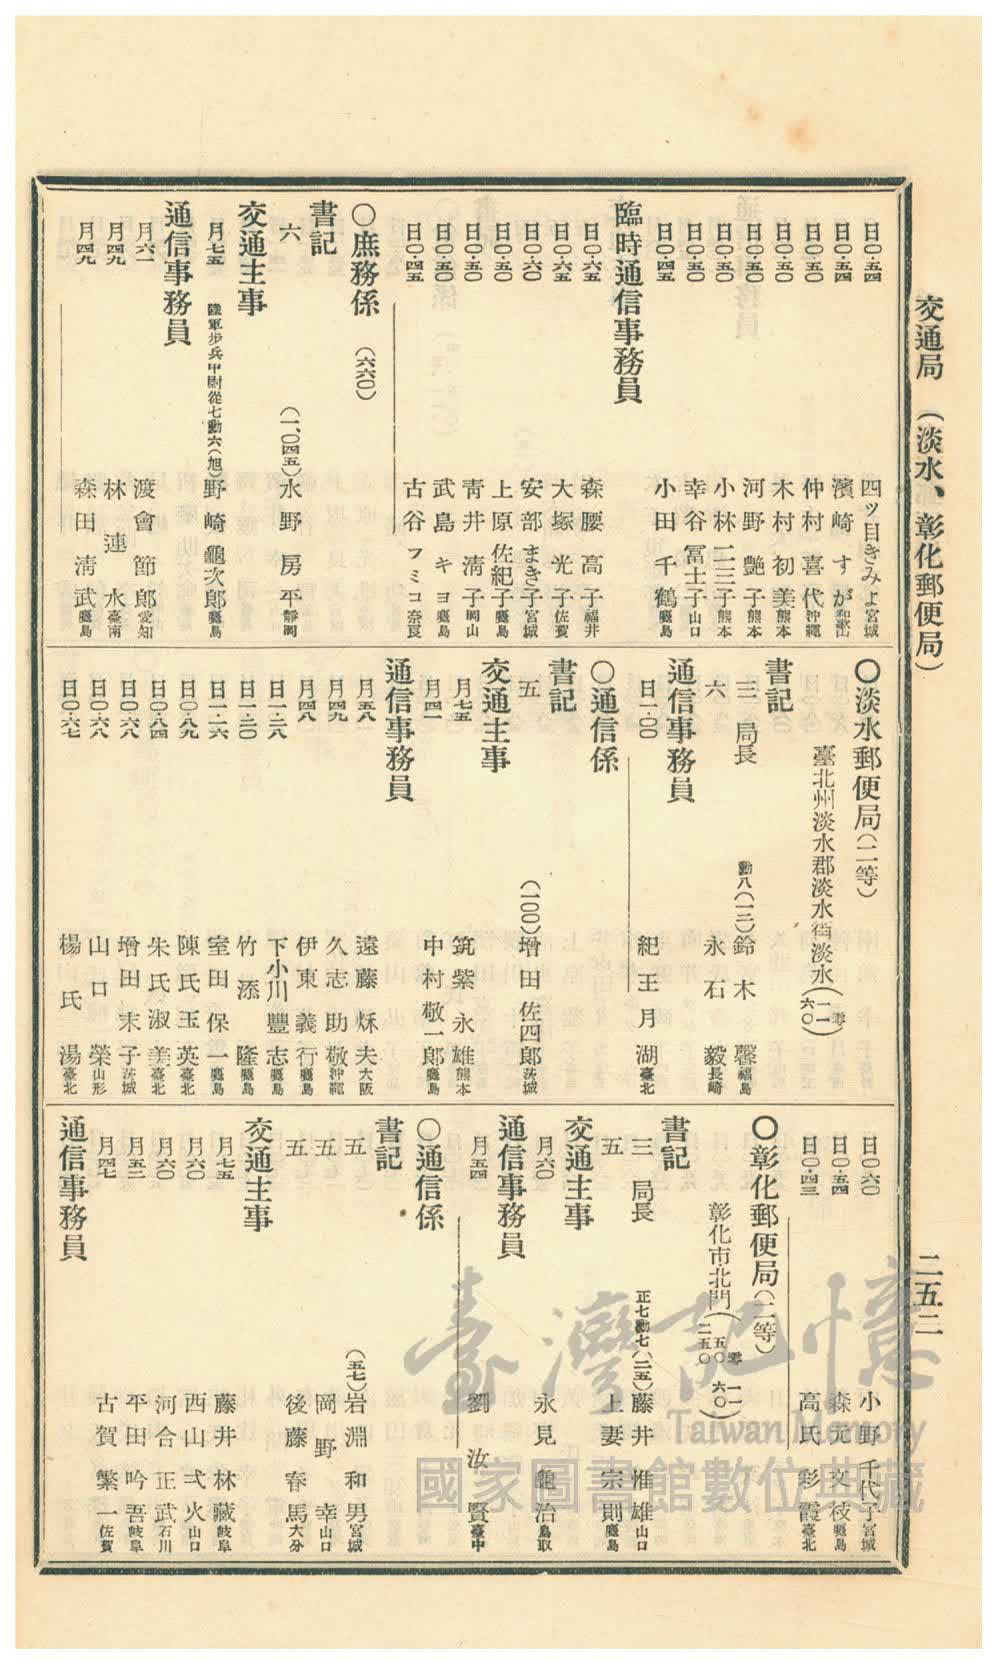 交通局　（淡水、彰化郵便局）
二五二
日〇・五四　四ツ目きみよ宮城
日〇・五四　濱崎すが和歌山
日〇・五〇　仲村喜代沖繩
日〇・五〇　木村初美熊本
日〇・五〇　河野艷子熊本
日〇・五〇　小林一二三子熊本
日〇・五〇　幸谷冨士子山口
日〇・四五　小田千鶴鹿兒島
臨時通信事務員
日〇・六五　森腰高子福井
日〇・六五　大塚光子佐賀
日〇・六〇　安部まき子宮城
日〇・五〇　上原佐紀子鹿兒島
日〇・五〇　青井淸子岡山
日〇・五〇　武島キヨ鹿兒島
日〇・四五　古谷フミコ奈良
〇庶務係　（六六〇）
書記
六　（一、〇四五）水野房平靜岡
交通主事
月七五　陸軍步兵中尉從七勳六（旭）野崎龜次郎鹿兒島
通信事務員
月六一　渡會節郎愛知
月四九　林連水臺南
月四九　森田淸武鹿兒島
〇淡水郵便局（二等）
臺北州淡水郡淡水街淡水（零一一六〇）
書記
三　局長　勳八（一三）鈴木馨福島
六　永石毅長崎
通信事務員
日一・〇〇　紀王月湖臺北
〇通信係
書記
五　（一〇〇）增田佐四郎茨城
交通主事
月七五　筑紫永雄熊本
月四一　中村敬一郎鹿兒島
通信事務員
月五八　遠藤烁夫大阪
月四九　久志助敬沖繩
月四八　伊東義行鹿兒島
日一・二八　下小川豐志鹿兒島
日一・二〇　竹添隆鹿兒島
日一・一六　室田保一鹿兒島
日〇・八九　陳氏玉英臺北
日〇・八四　朱氏淑美臺北
日〇・六八　增田末子茨城
日〇・六八　山口榮山形
日〇・六七　楊氏湯臺北
日〇・六〇　小野千代子宮城
日〇・五四　森元文枝鹿兒島
日〇・四三　高氏彩霞臺北
〇彰化郵便局（二等）
彰化市北門（零一一五〇六〇二五〇）
書記
三　局長　正七勳七（二五）藤井惟雄山口
五　上妻宗則鹿兒島
交通主事
月六〇　永見龜治鳥取
通信事務員
月五四　劉汝賢臺中
〇通信係
書記
五　（五七）岩淵和男宮城
五　岡野幸山口
五　後藤春馬大分
交通主事
月七五　藤井林藏岐阜
月六〇　西山弌火山口
月六〇　河合正武石川
月五二　平田吟吾岐阜
月四七　古賀繁一佐賀
通信事務員
臺灣記憶
Taiwan Memory
國家圖書館數位典藏